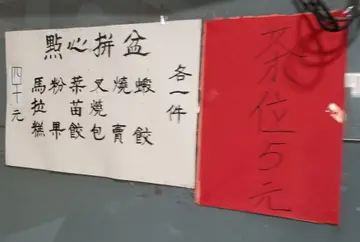 點心拼盆
蝦餃
燒賣
叉燒包
菜苗餃
粉果
馬拉糕
各一件
四十元
茶位5元